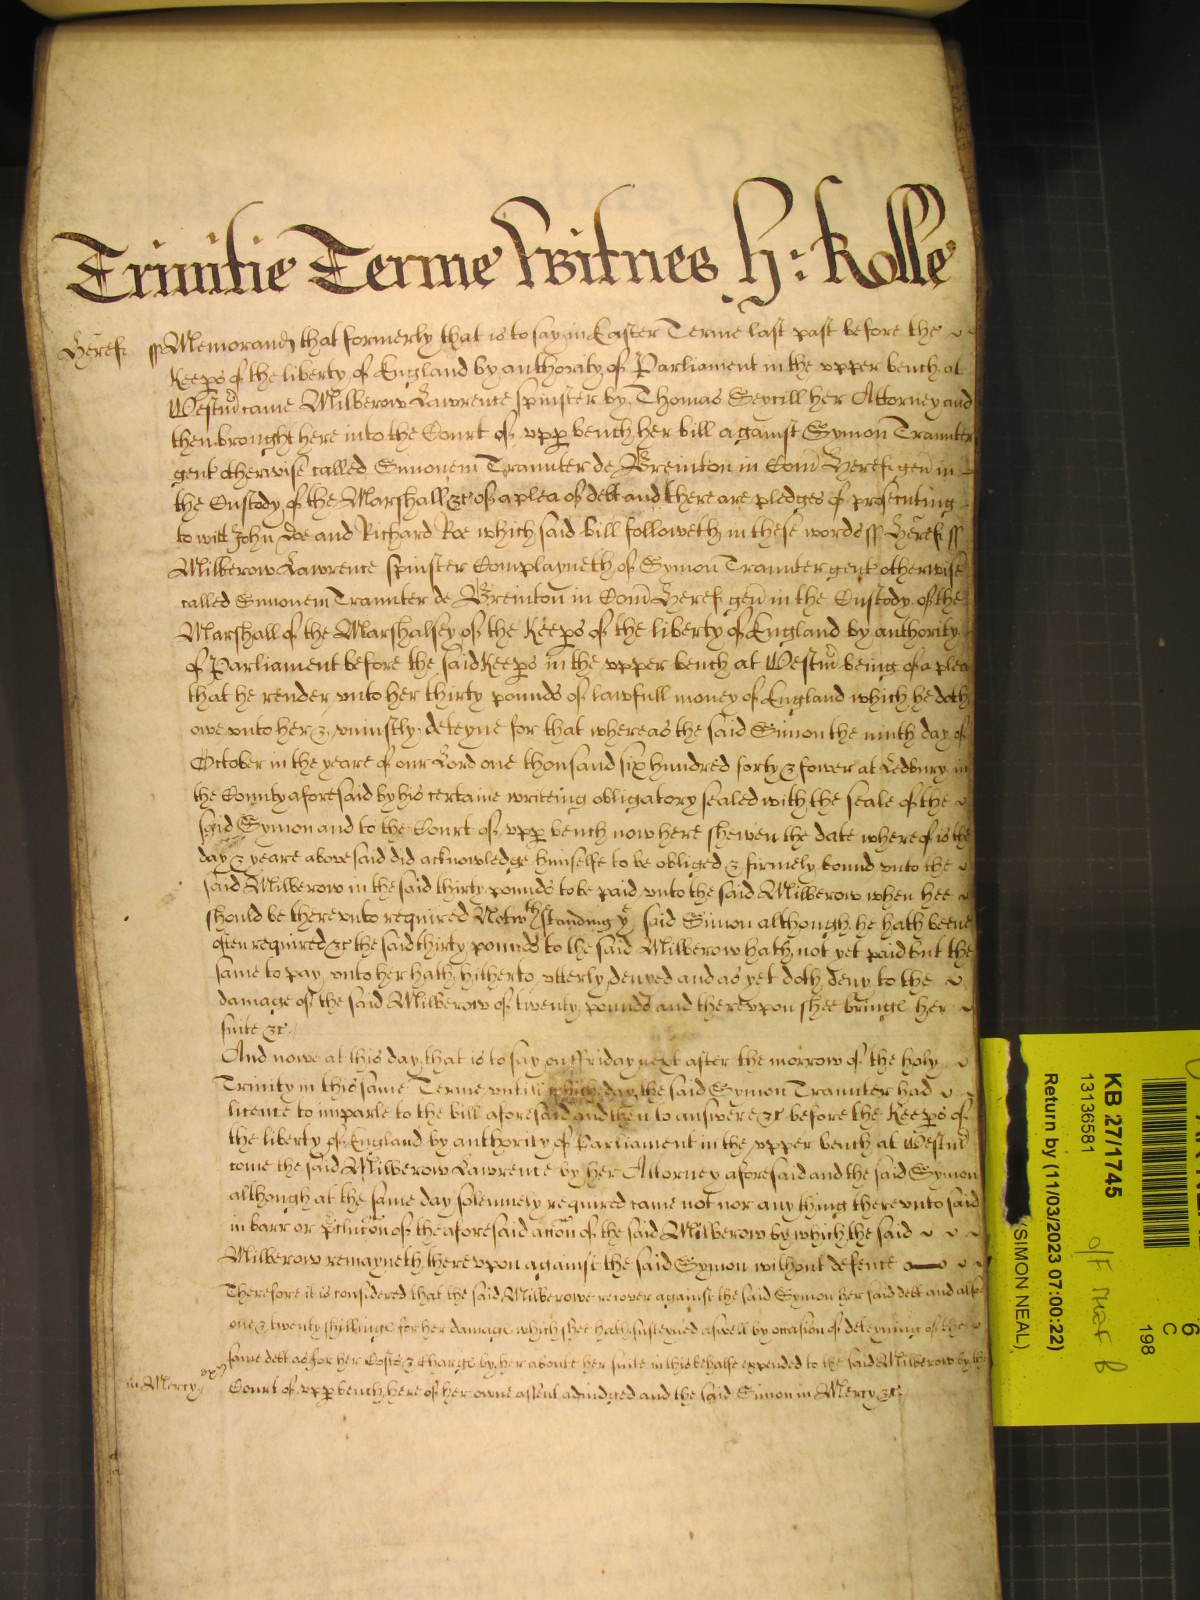 Trinitie Terme Witnes H: Rolle
Heref ss Memorand that formerly that is to say in Easter Terme last past before the
Keeps of the liberty of England by authority of Parliament in the vpper bench at
Westm came Milberow Lawrence spinster by Thomas Seycill her Attorney and
then brought here into the Court of vpp bench her bill against Symon Traunter
gent otherwise called Simonem Traunter de Breinton in Com Heref gen in
the Custody of the Marshall &c of a plea of debt and there are pledges of prosecuting
to witt John Doe and Richard Roe which said bill followeth in these words ss Heref ss
Milberow Lawrence spinster Complayneth of Symon Traunter gent otherwise
called Simonem Traunter de Breinton in Com Heref gen in the Custody of the
Marshall of the Marshalsey of the Keeps of the liberty of England by authority
of Parliament before the said Keeps in the vpper bench at Westm being of a plea
that he render vnto her thirty pounds of lawfull money of England which he doth
owe vnto her & vniustly deteyne for that whereas the said Simon the ninth day of
October in the yeare of our Lord one thousand six hundred forty & fower at Ledbury in
the County aforesaid by his certaine writeing obligatory sealed with the seale of the
said Symon and to the Court of vpp bench now here shewen the date whereof is the
day & yeare abovesaid did acknowledge himselfe to be obliged & firmely bound vnto the
said Milberow in the said thirty pounds to be paid vnto the said Milberow when hee
should be therevnto required Notwthstanding ye said Simon although he hath beene
often required &c the said thirty pounds to the said Milberow hath not yet paid but the
same to pay vnto her hath hitherto vtterly denyed and as yet doth deny to the
damage of the said Milberow of twenty pounds and therevpon shee bringe her
suite &c
And nowe at this day that is to say on ffriday next after the morrow of the holy
Trinity in this same Terme vntill which day the said Symon Traunter had
licence to imparle to the bill aforesaid and then to answere &c before the Keeps of
the liberty of England by authority of Parliament in the vpper bench at Westm
come the said Milberow Lawrence by her Attorney aforesaid and the said Symon
although at the same day solemnely required came not nor any thing therevnto said
in barr or of the aforesaid accon of the said Milberow by which the said
Milberow remayneth therevpon against the said Symon without defence
Therefore it is considered that the said Milberowe recover against the said Symon her said debt and alsoe
one & twenty shillings for her damage which shee hath susteyned aswell by occasion of deteyning of the
same debt as for her Costs & Charges by her aboute her suite in this behalfe expended to the said Milberow by the
in Mercy Court of vpp bench here of her owne assent adiudged and the said Simon in Mercy &c
KB 27/1745
13136581
Return by (11/03/2023 07:00:22)
(SIMON NEAL)
198
C
6